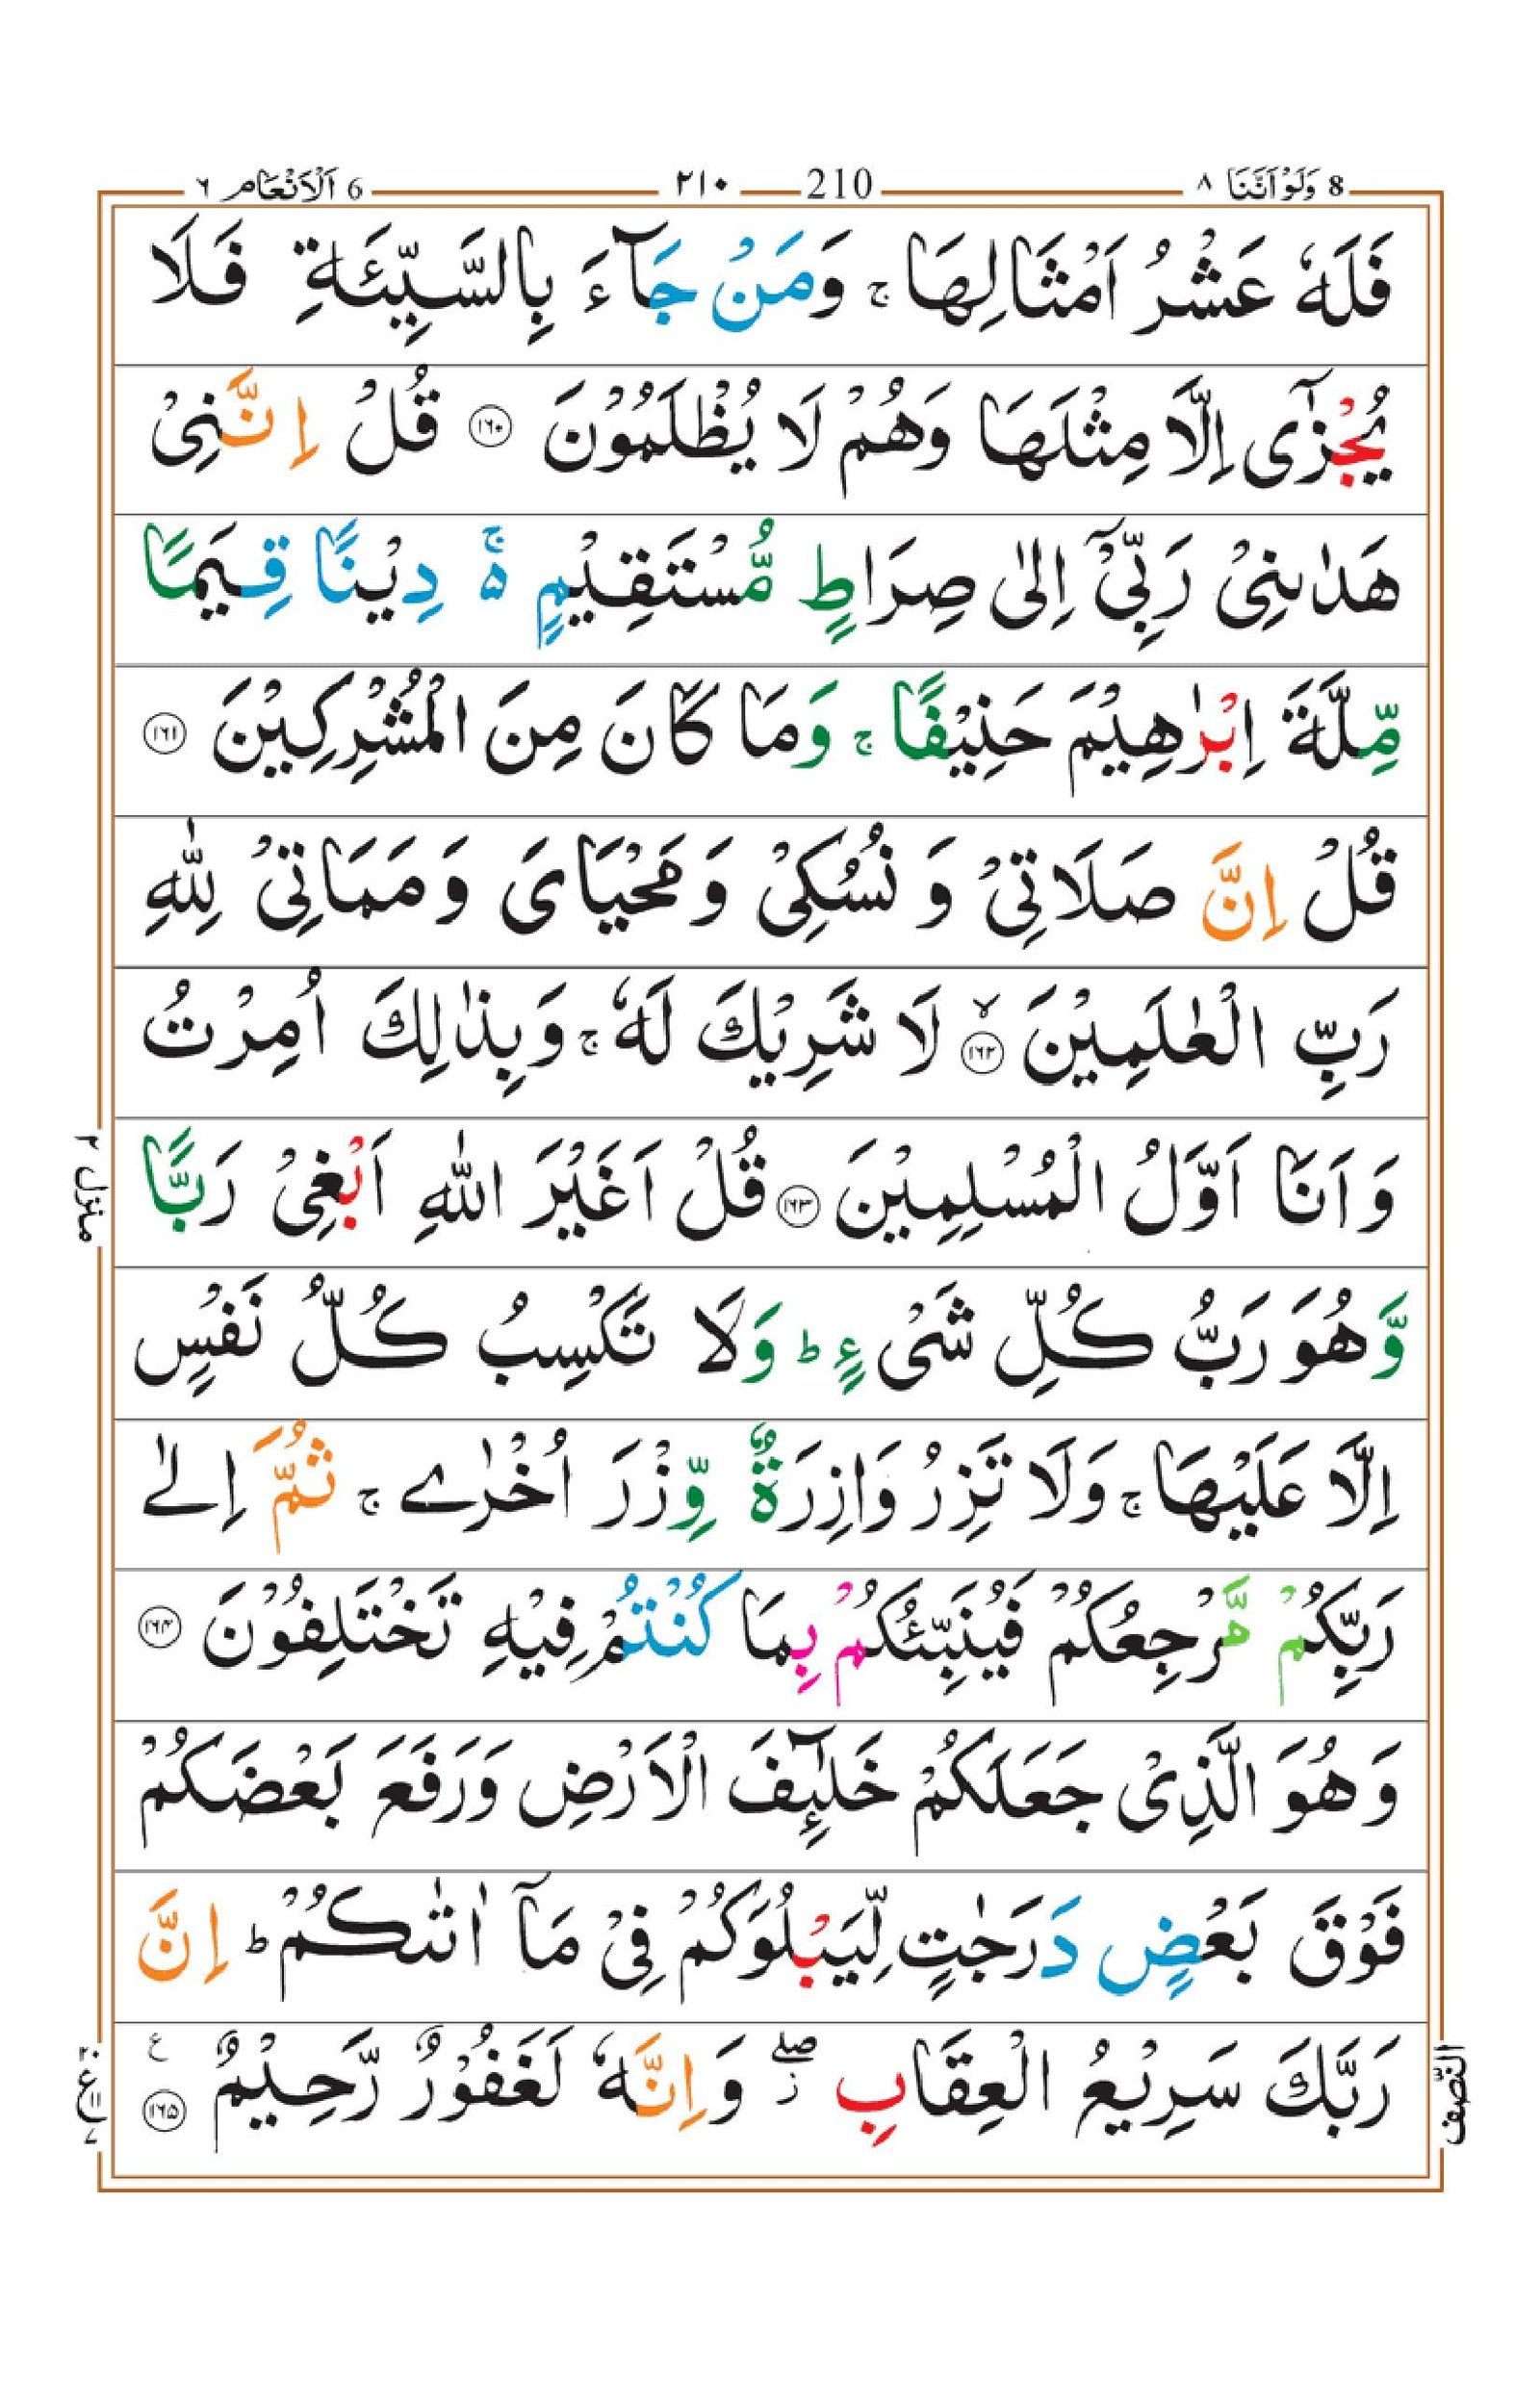 8 وَلَوْ اَنَّنَا ٨ 210 ٢١٠ 6 اَلْاَنْعَام ٦
فَلَهٗ عَشْرُ اَمْثَالِهَا ۚ وَمَنْ جَآءَ بِالسَّيِّئَةِ فَلَا
يُجْزٰٓى اِلَّا مِثْلَهَا وَهُمْ لَا يُظْلَمُوْنَ ١٦٠ قُلْ اِنَّنِىْ
هَدٰىنِىْ رَبِّىْۤ اِلٰى صِرَاطٍ مُّسْتَقِيْمٍ ۚ۬ دِيْنًا قِيَمًا
مِّلَّةَ اِبْرٰهِيْمَ حَنِيْفًا ۚ وَمَا كَانَ مِنَ الْمُشْرِكِيْنَ ١٦١
قُلْ اِنَّ صَلَاتِىْ وَ نُسُكِىْ وَمَحْيَاىَ وَمَمَاتِىْ لِلّٰهِ
رَبِّ الْعٰلَمِيْنَ ۙ ١٦٢ لَا شَرِيْكَ لَهٗ ۚ وَبِذٰلِكَ اُمِرْتُ
وَاَنَا اَوَّلُ الْمُسْلِمِيْنَ ١٦٣ قُلْ اَغَيْرَ اللّٰهِ اَبْغِىْ رَبًّا
وَّهُوَ رَبُّ كُلِّ شَىْءٍ ؕ وَلَا تَكْسِبُ كُلُّ نَفْسٍ
اِلَّا عَلَيْهَا ۚ وَلَا تَزِرُ وَازِرَةٌ وِّزْرَ اُخْرٰے ۚ ثُمَّ اِلٰے
رَبِّكُمْ مَّرْجِعُكُمْ فَيُنَبِّئُكُمْ بِمَا كُنْتُمْ فِيْهِ تَخْتَلِفُوْنَ ١٦٤
وَهُوَ الَّذِىْ جَعَلَكُمْ خَلٰٓئِفَ الْاَرْضِ وَرَفَعَ بَعْضَكُمْ
فَوْقَ بَعْضٍ دَرَجٰتٍ لِّيَبْلُوَكُمْ فِىْ مَاۤ اٰتٰٮكُمْ ؕ اِنَّ
رَبَّكَ سَرِيْعُ الْعِقَابِ ۖ ز وَاِنَّهٗ لَغَفُوْرٌ رَّحِيْمٌ ع ١٦٥
منزل ٢
النّصف